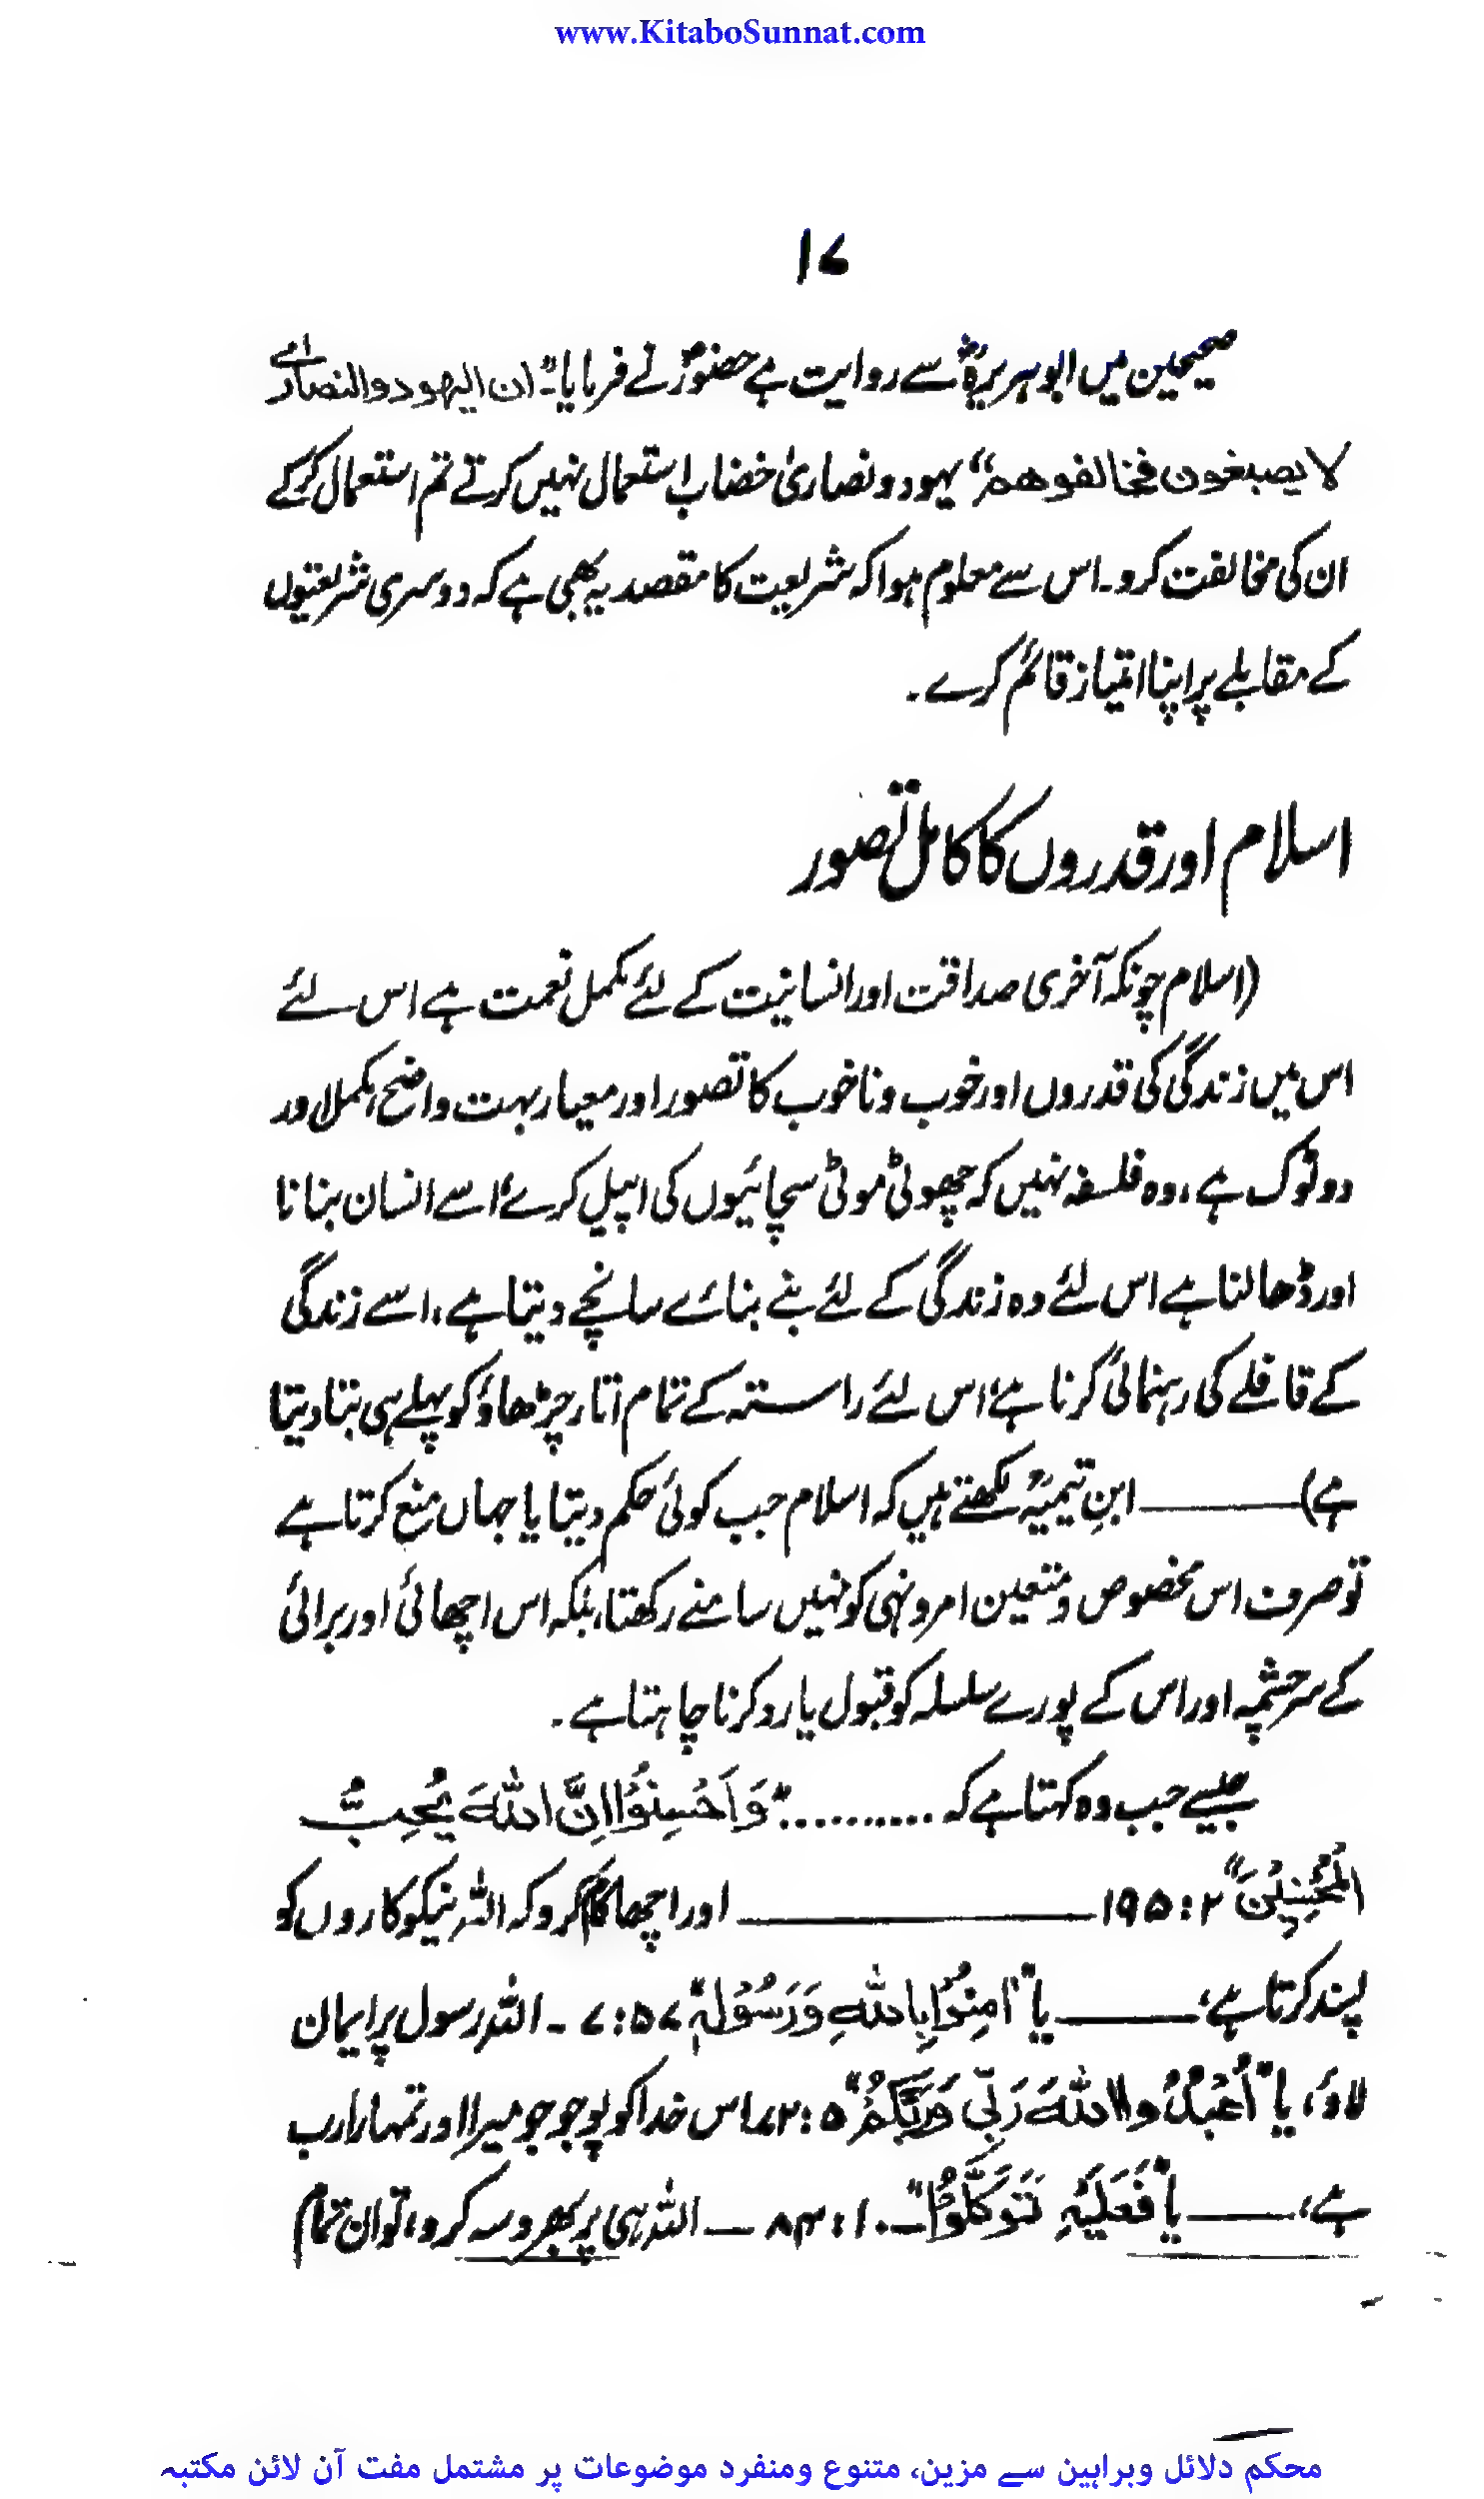 www.KitaboSunnat.com
۱۷
صحیحین میں ابوہریرہؓ سے روایت ہے حضورؐ نے فرمایا۔"ان الیھود والنصارے
لا یصبغون فخالفوھم" یہود و نصاریٰ خضاب استعمال نہیں کرتے تم استعمال کرکے
ان کی مخالفت کرو۔ اس سے معلوم ہوا کہ شریعت کا مقصد یہ بھی ہے کہ دوسری شریعتوں
کے مقابلے پر اپنا امتیاز قائم کرے۔
اسلام اور قدروں کا کامل تصور
(اسلام چونکہ آخری صداقت اور انسانیت کے لئے مکمل نعمت ہے اس لئے
اس میں زندگی کی قدروں اور خوب و ناخوب کا تصور اور معیار بہت واضح، مکمل اور
دو ٹوک ہے، وہ فلسفہ نہیں کہ چھوٹی موٹی سچائیوں کی اپیل کرے، اسے انسان بنانا
اور ڈھالنا ہے اس لئے وہ زندگی کے لئے بنے بنائے سانچے دیتا ہے، اسے زندگی
کے قافلے کی رہنمائی کرنا ہے، اس لئے راستہ کے تمام اتار چڑھاؤ کو پہلے ہی بتا دیتا
ہے) ——— ابنِ تیمیہؒ لکھتے ہیں کہ اسلام جب کوئی حکم دیتا یا جہاں منع کرتا ہے
تو صرف اس مخصوص و متعین امر و نہی کو نہیں سامنے رکھتا، بلکہ اس اچھائی اور برائی
کے سرچشمہ اور اس کے پورے سلسلہ کو قبول یا رد کرنا چاہتا ہے۔
جیسے جب وہ کہتا ہے کہ .........."وَاَحْسِنُوْا اِنَّ اللّٰهَ یُحِبُّ
الْمُحْسِنِیْنَ" ۲:۱۹۵ ——————— اور اچھا کام کرو کہ اللہ نیکوکاروں کو
پسند کرتا ہے، ——— یا "اٰمِنُوْا بِاللّٰهِ وَرَسُوْلِهٖ" ۵۷:۷ ۔ اللہ رسول پر ایمان
لاؤ، یا "اُعْبُدُوا اللّٰهَ رَبِّی وَرَبَّکُمْ" ۵:۷۲ اس خدا کو پوجو جو میرا اور تمہارا رب
ہے، ——— یا "فَعَلَیْهِ تَوَکَّلُوْا" ـ ۱۰:۸۴ — اللہ ہی پر بھروسہ کرو، تو ان تمام
محکم دلائل وبراہین سے مزین، متنوع ومنفرد موضوعات پر مشتمل مفت آن لائن مکتبہ